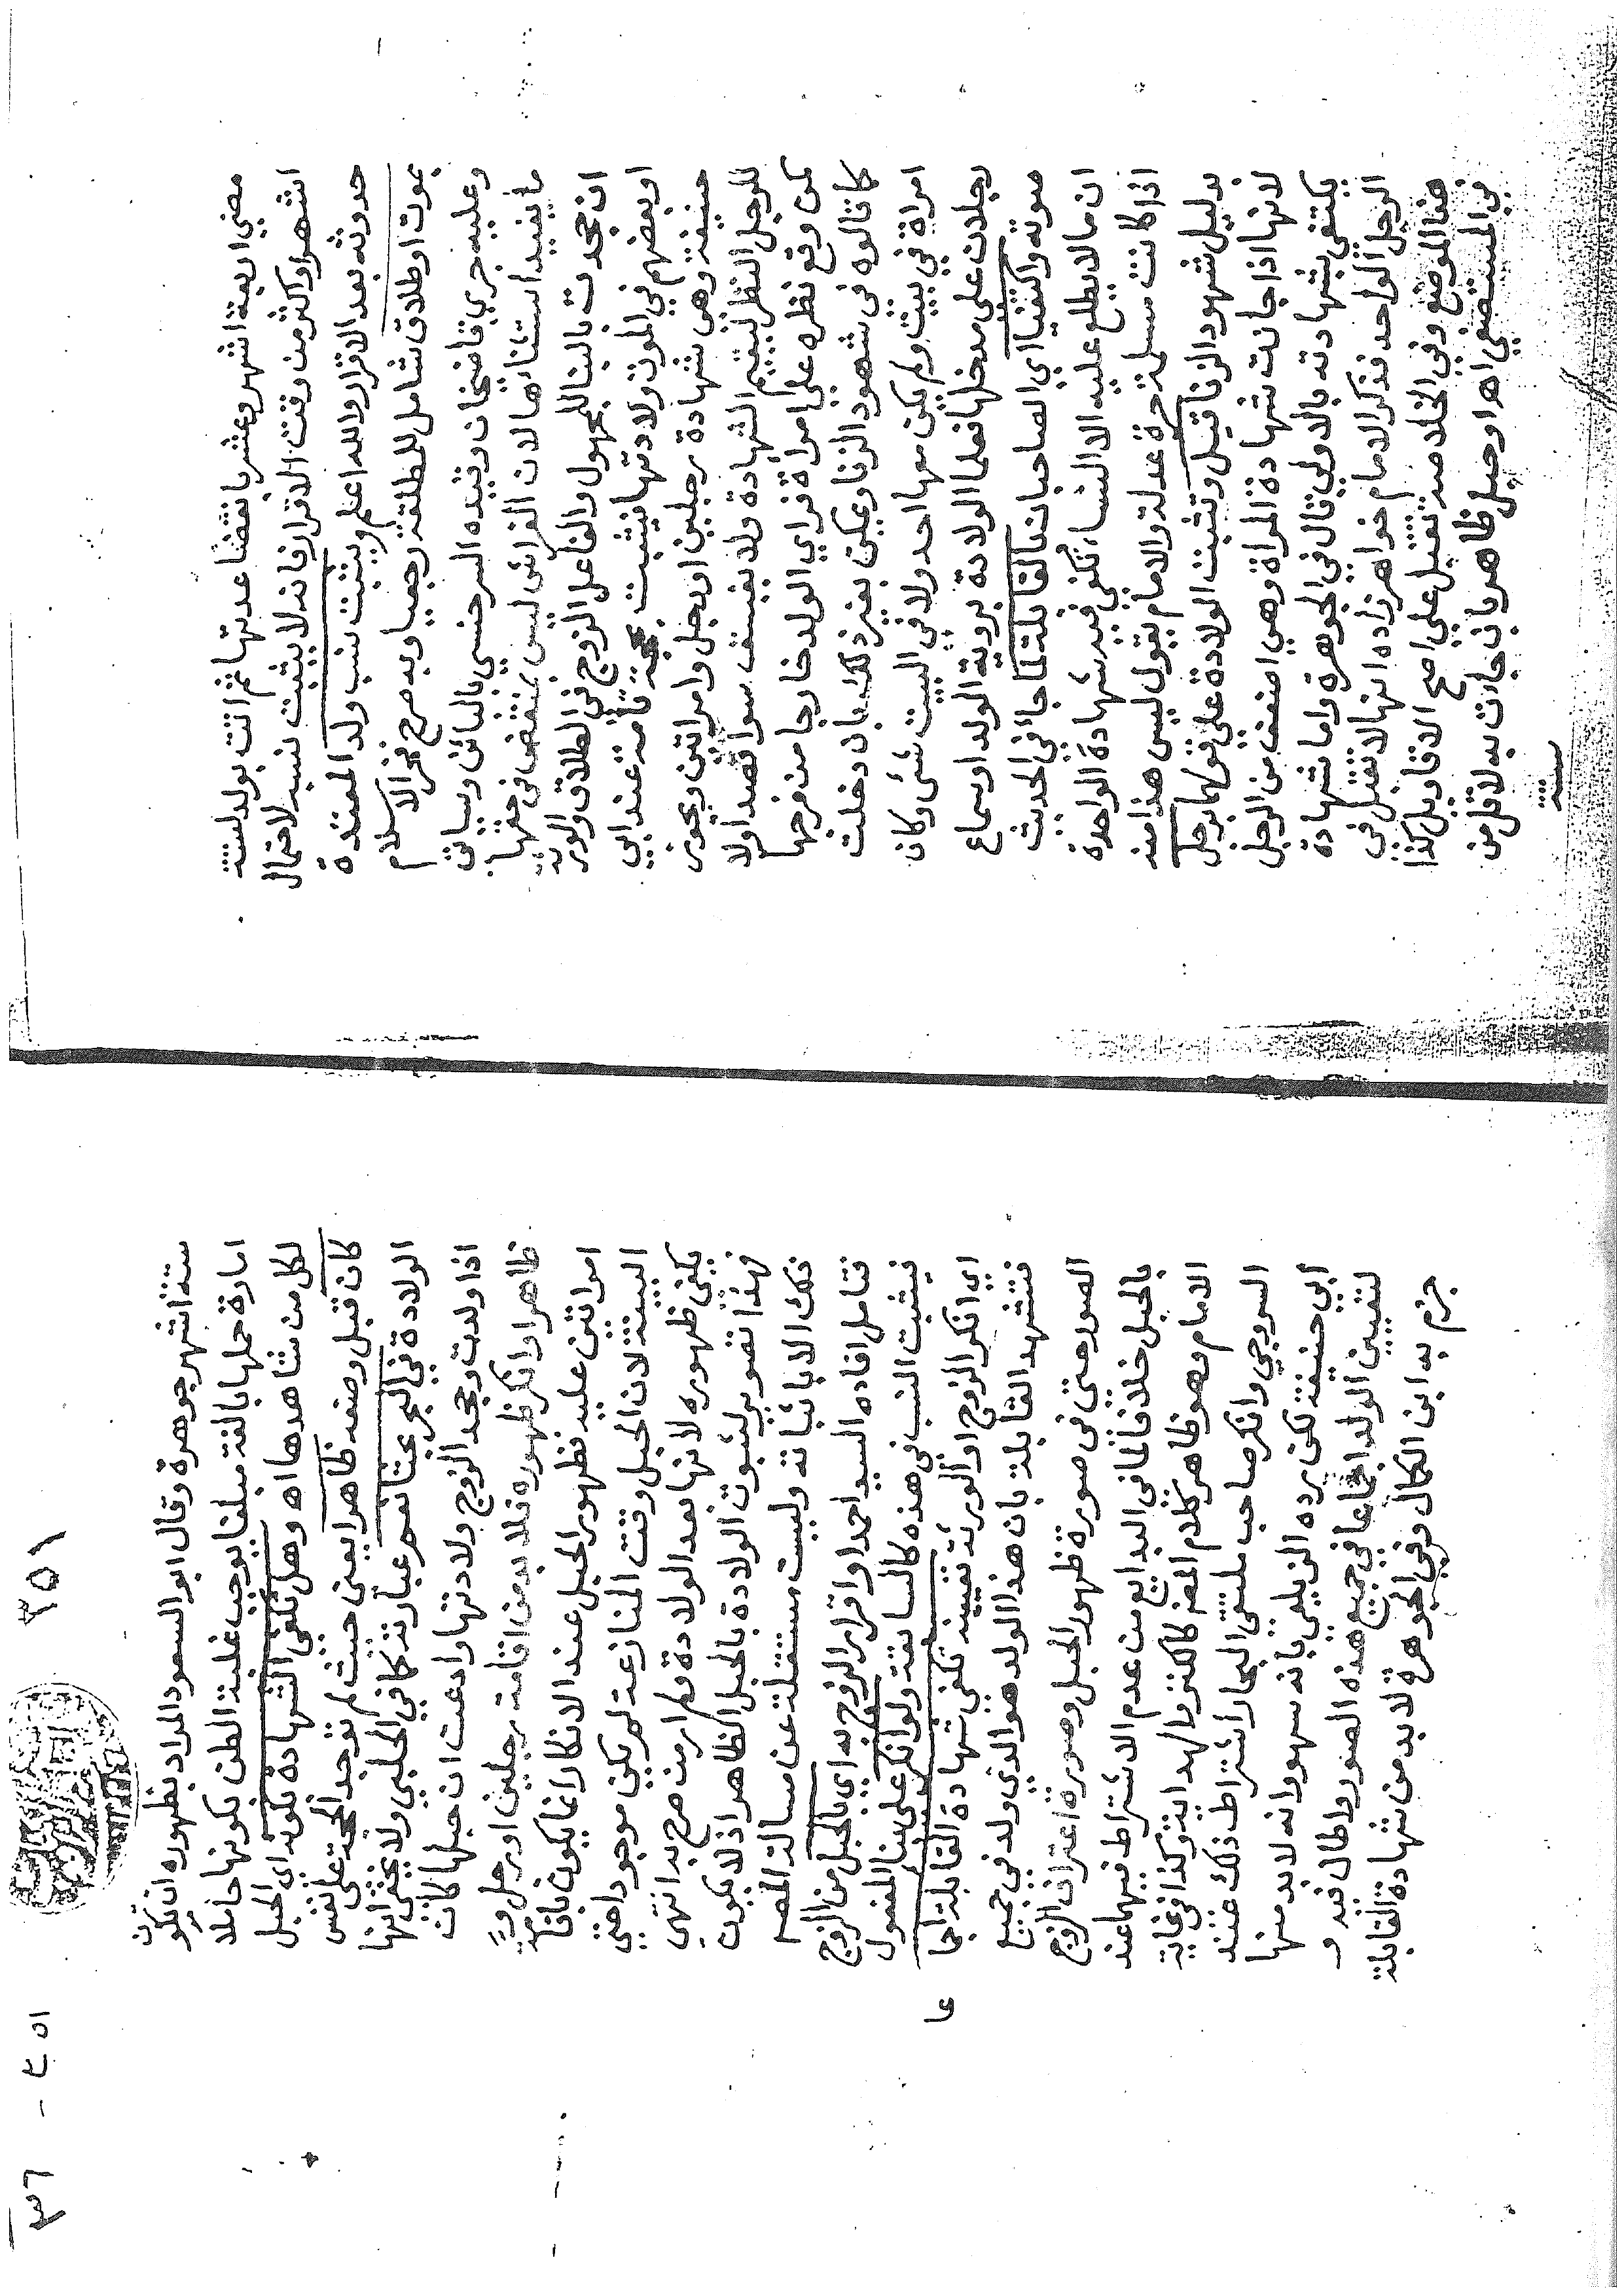 مضي اربعة اشهر وعشر بانقضا عدتها ثم اتت بولد لستة
اشهر او اكثر من وقت الاقرار فانه لا يثبت نسبه لاحتمال
حدوثه بعد الاقرار والله اعلم ويثبت نسب ولد المعتدة
بموت او طلاق شامل للمطلقة رجعيا وبه صرح فخر الاسلام
وعليه جري قاضيخان وقيده السرخسي بالبائن وسياتي
ما يفيد استثناءها لان الفراش ليس بمنقض في حقها
ان جحدت بالبنا للمجهول والفاعل الزوج في الطلاق والورثة
او بعضهم في الموت ولادتها فيثبت بحجة تامة عند ابي
حنيفة وهي شهادة رجلين او رجل وامراتين ويجوز
للرجل النظر لتقيم الشهادة ولا يفسق سوا قصد اولا
كمن وقع نظره علي امراة فراي الولد خارجا من فرجها
كما قالوه في شهود الزنا ويمكن بغير ذلك بان دخلت
امراة في بيت ولم يكن معها احد ولا في البيت شئ وكان
رجلان علي مدخلها فعلما الولادة بروية الولد او سماع
صوته واكتفيا اي الصاحبان بالقابلة لما جا في الحديث
ان ما لا يطلع عليه الا النساء تكفي فيه شهادة الواحدة
اذا كانت مسلمة حرة عدلة والامام يقول ليس هذا منه
بدليل شهود الزنا قيل وتثبت الولادة علي قولهما برجل
لانها اذا جازت شهادة المراة وهي اضعف من الرجل
يكتفي بشهادته بالاولي قال في الجوهرة واما شهادة
الرجل الواحد فذكر الامام خواهر زاده انها لا تقبل في
هذا الموضع وفي الخلاصة تقبل علي اصح الاقاويل كذا
في المستصفي اه او حبل ظاهر بان جاءت به لاقل من
ستة
٣٥١
٣٦ - ٤٥١
ستة اشهر جوهرة وقال ابو السعود المراد بظهوره ان تكون
امارة حملها بالغة مبلغا يوجب غلبة الظن بكونها حاملا
لكل من شاهدها اه وهل تكفي الشهادة بكونه اي الحبل
كان قبل وصفه ظاهرا يعني حيث لم توجد الحجة علي نفس
الولادة في البحر بحثا نعم عبارته كما في الحلبي ولا يخفي انها
اذا ولدت وجحد الزوج ولادتها وادعت ان حبلها كان
ظاهرا وانكر ظهوره فلا بد من اقامة رجلين او رجل و
امراتين عليه فظهور الحبل عند الانكار انما يكون باقامة
البينة لان الحبل وقت المنازعة لم يكن موجودا حتي
يكفي ظهوره لانها بعد الولادة فلم ار من صرح به انتهي
فهذا تصوير لثبوت الولادة بالحبل الظاهر اذ لا يكون
ذلك الا باثباته وليست مستقلة عن مسالة المصم
فتامل افاده السيد احمد او اقرار الزوج به اي بالحبل من الزوج
فيثبت النسب في هذه كالسابقة ولو انكر علي بنا المفعول
اي انكر الزوج او الورثة تعيينه تكفي شهادة القابلة اجما عا
فتشهد القابلة بان هذا الولد هو الذي ولد في جميع
الصور حتي في صورة ظهور الحبل وصورة اعتراف الزوج
بالحبل خلافا لما في البدايع من عدم الاشتراط فيهما عند
الامام وهو ظاهر كلام المصم كالكنز والهداية وكذا في غاية
السروجي وانكر صاحب ملتقي البحار اشتراط ذلك عند
ابي حنيفة لكن رده الزيلعي بانه سهو وانه لا بد منها
لتعيين الولد اجماعا في جميع هذه الصور واطال فيه و
جزم به ابن الكمال وفي الجوهرة لا بد من شهادة القابلة